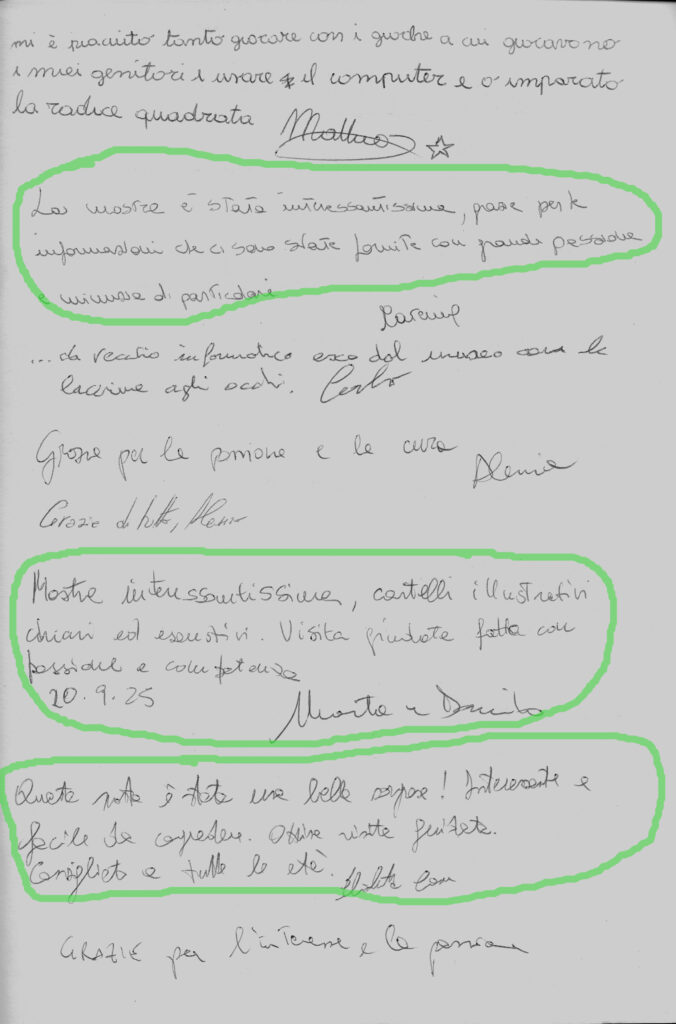 mi è piaciuto tanto giocare con i giochi a cui giocavono
i miei genitori i usare il computer e o imparato
la radice quadrata Matteo
La mostra è stata interessantissima, grazie per le
informazioni che ci sono state fornite con grande passione
e minuzia di particolari
... da vecchio informatico esco dal museo con le
lacrime agli occhi. Carlo
Grazie per la passione e la cura
Grazie di tutto,
Mostra interessantissima, cartelli illustrativi
chiari ed esaustivi. Visita guidata fatta con
passione e competenza
20.9.25
Marta e Danilo
Questa mostra è stata una bella sorpresa! Interessante e
facile da comprendere. Ottima visita guidata.
Consigliata a tutte le età.
GRAZIE per l'interesse e la passione